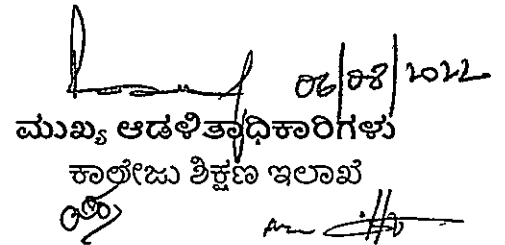 06/08/2022
ಮುಖ್ಯ ಆಡಳಿತಾಧಿಕಾರಿಗಳು
ಕಾಲೇಜು ಶಿಕ್ಷಣ ಇಲಾಖೆ